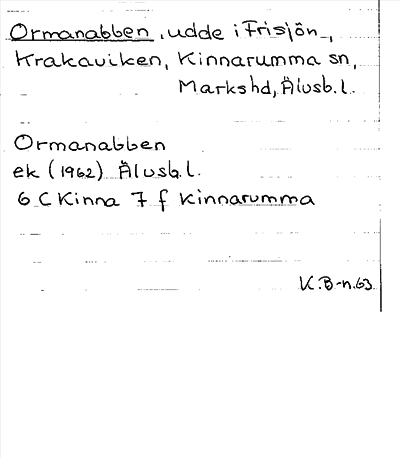 Ormanabben, udde i Frisjön,
Krakaviken, Kinnarumma sn,
Markshd, Älvsb.l.
Ormanabben
ek (1962) Älvsb.l.
6 C Kinna 7 f Kinnarumma
K.B-n.63